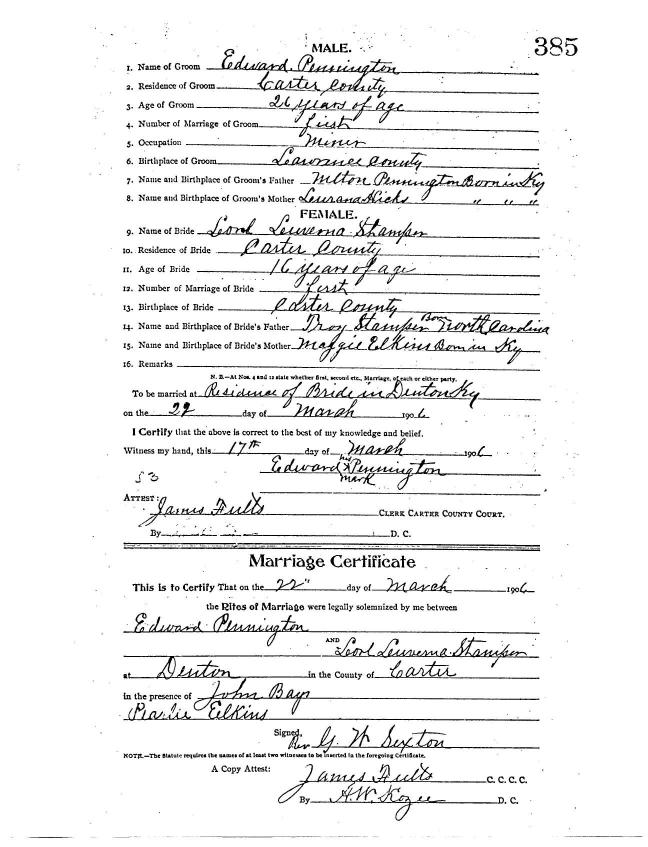 385
MALE.
1. Name of Groom Edward Pennington
2. Residence of Groom Carter County
3. Age of Groom 26 years of age
4. Number of Marriage of Groom first
5. Occupation Miner
6. Birthplace of Groom Lawrence County
7. Name and Birthplace of Groom's Father Milton Pennington Born in Ky
8. Name and Birthplace of Groom's Mother Leurana Hicks " " "
FEMALE.
9. Name of Bride Leuverna Stamper
10. Residence of Bride Carter County
11. Age of Bride 16 years of age
12. Number of Marriage of Bride first
13. Birthplace of Bride Carter County
14. Name and Birthplace of Bride's Father Troy Stamper Born North Carolina
15. Name and Birthplace of Bride's Mother Maggie Elkins Born in Ky
16. Remarks
N. B.—At Nos. 4 and 12 state whether first, second etc., Marriage, of each or either party.
To be married at Residence of Bride in Denton Ky
on the 22 day of March 1906
I Certify that the above is correct to the best of my knowledge and belief.
Witness my hand, this 17th day of March 1906
Edward his X mark Pennington
53
ATTEST: James Fults CLERK CARTER COUNTY COURT.
By D. C.
Marriage Certificate
This is to Certify That on the 22" day of March 1906
the Rites of Marriage were legally solemnized by me between
Edward Pennington
AND
Leuverna Stamper
at Denton in the County of Carter
in the presence of John Bays
Pearlie Elkins
Signed, Rev G. W Sexton
NOTE.—The Statute requires the names of at least two witnesses to be inserted in the foregoing Certificate.
A Copy Attest:
James Fults C. C. C. C.
By A.W. Kozee D. C.